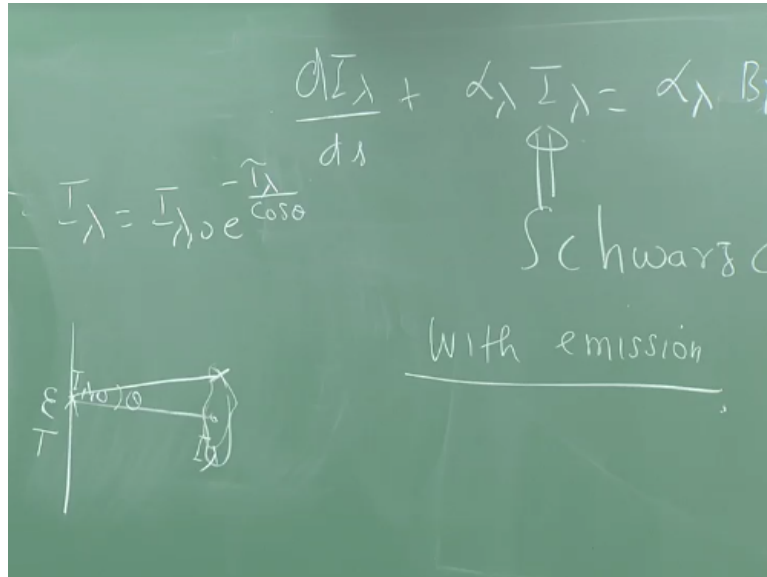 dIλ/ds + αλ Iλ = αλ B
Iλ = Iλ0 e^(-τ̃λ/cosθ)
Schwarz
With emission
ε
T
θ